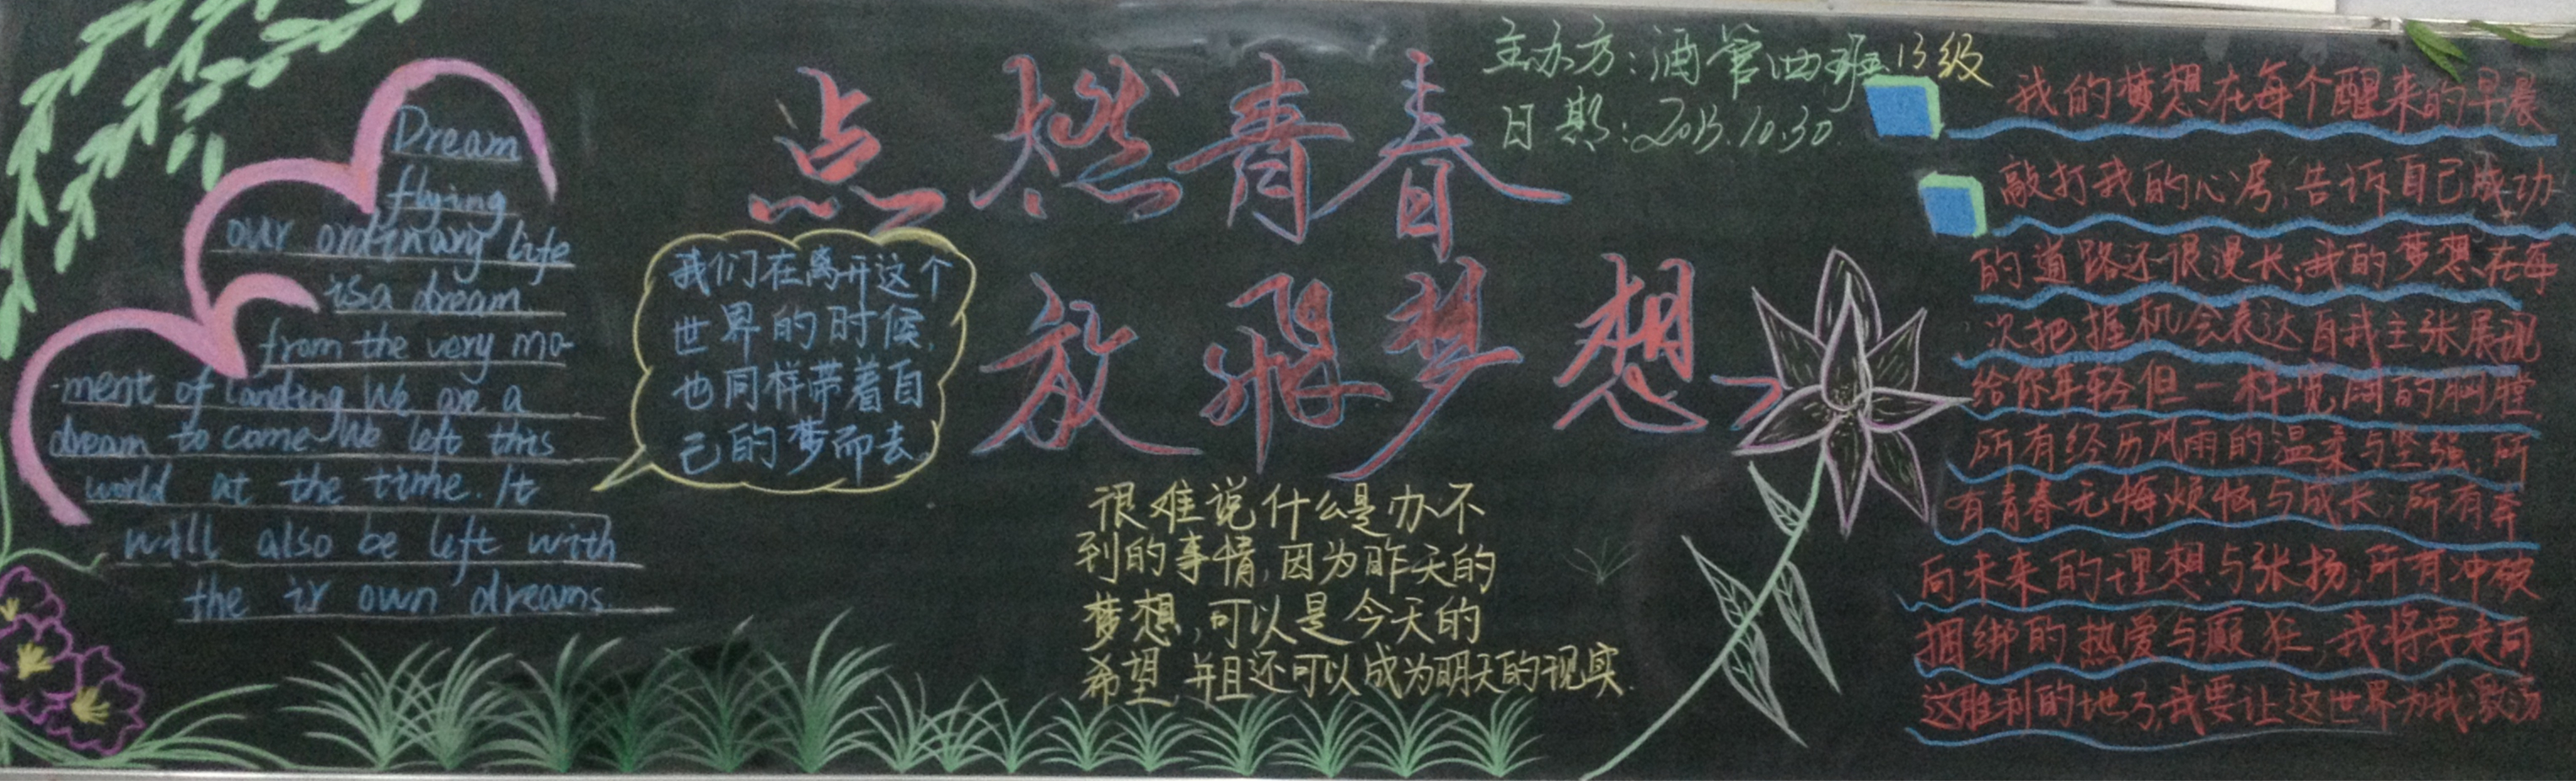 Dream
flying
our ordinary life
is a dream
from the very mo-
ment of landing We are a
dream to come We left this
world at the time. It
will also be left with
the ir own dreams
我们在离开这个
世界的时候,
也同样带着自
己的梦而去。
点燃青春
放飛梦想
主办方:酒管四班13级
日期:2013.10.30
很难说什么是办不
到的事情,因为昨天的
梦想,可以是今天的
希望,并且还可以成为明天的现实.
我的梦想在每个醒来的早晨
敲打我的心房,告诉自己成功
的道路还很漫长;我的梦想在每
次把握机会表达自我主张展现
给你年轻但一样宽阔的胸膛.
所有经历风雨的温柔与坚强,所
有青春无悔烦恼与成长,所有奔
向未来的理想与张扬,所有冲破
捆绑的热爱与癫狂,我将要走向
这胜利的地方,我要让这世界为我激荡